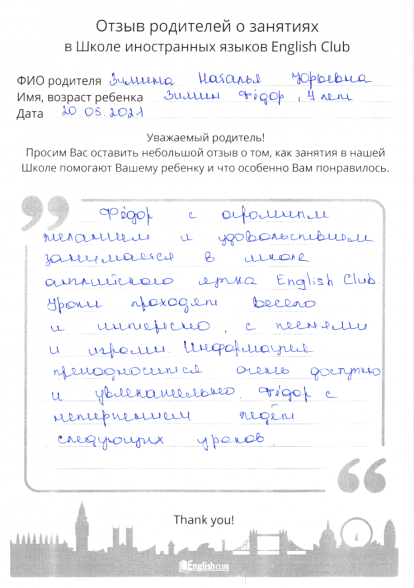 Отзыв родителей о занятиях
в Школе иностранных языков English Club
ФИО родителя Зимина Наталья Юрьевна
Имя, возраст ребенка Зимин Фёдор, 7 лет
Дата 20.05.2021
Уважаемый родитель!
Просим Вас оставить небольшой отзыв о том, как занятия в нашей
Школе помогают Вашему ребенку и что особенно Вам понравилось.
Фёдор с огромным
желанием и удовольствием
занимается в школе
английского языка English Club.
Уроки проходят весело
и интересно, с песнями
и играми. Информация
преподносится очень доступно
и увлекательно. Фёдор с
нетерпением ждёт
следующих уроков.
Thank you!
English CLUB